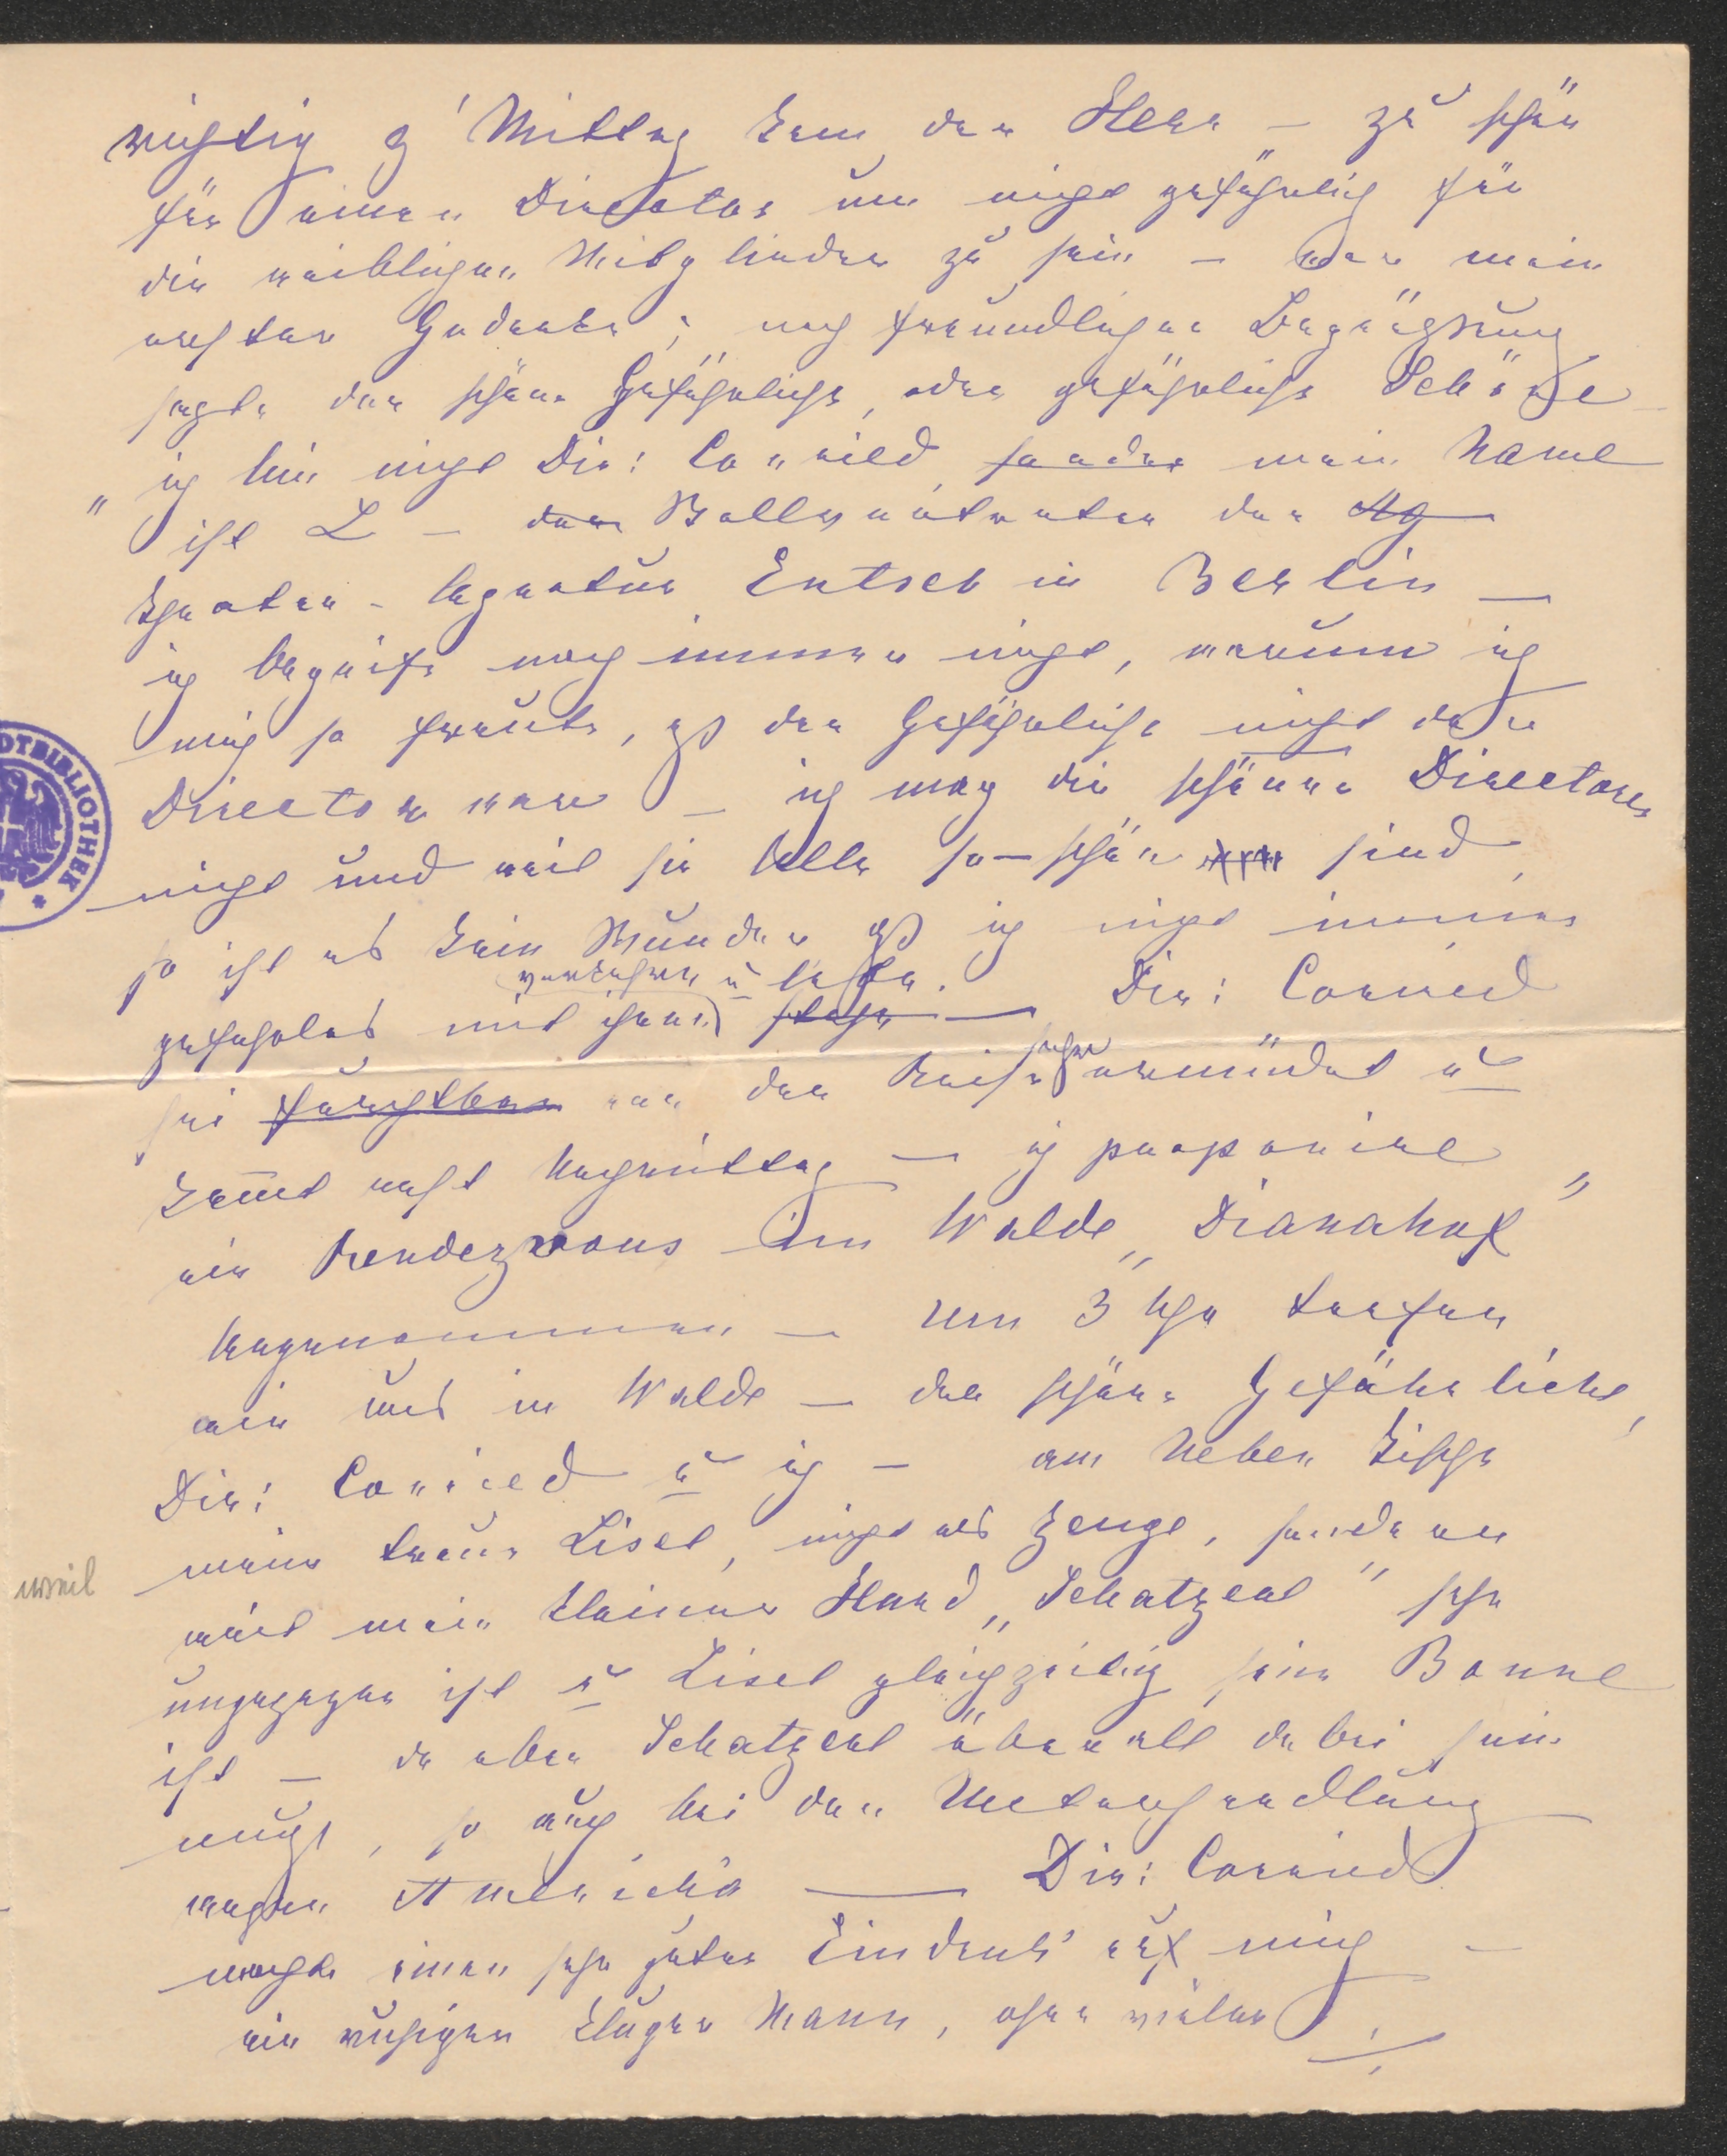 richtig z' Mittag kam der Herr – zu schön
für einen Director um nicht gefährlich für
die weiblichen Mitglieder zu sein – war mein
erster Gedanke; nach freundlicher Begrüßung
sagte der schöne Gefährliche, oder gefährliche Schöne
„ich bin nicht Dir: Conried, sonder mein Name
ist L – der Vollvertreter der Ag
Theater-Agentur Entsch in Berlin –
ich begreife noch immer nicht, warum ich
mich so freute, daß der Gefährliche nicht der
Director war – ich mag die schönen Directoren
nicht und weil sie Alle so – schön sind,
so ist es kein Wunder daß ich nicht immer
verkehren u lasse.
gefahrlos mit ihnen stehe – Dir: Conried
sei furchtbar von der Reise sehr ermüdet u
komt erst Nachmittag – ich proponire
ein Rendezvous im Walde „Dianahof"
Angenommen – um 3 Uhr trafen
wir uns im Walde – der schöne Gefährliche,
Dir: Conried u ich – am Neben Tische
meine treue Lisel, nicht als Zeuge, sondern
weil
weil mein kleiner Hund „Schatzerl" sehr
ungezogen ist u Lisel gleichzeitig seine Bonne
ist – da aber Schatzerl überall dabei sein
muß, so auch bei der Unterhandlung
wegen Amerika – Dir: Conried
machte einen sehr guten Eindruck auf mich –
ein ruhiger kluger Mann, ohne vieler
STADTBIBLIOTHEK